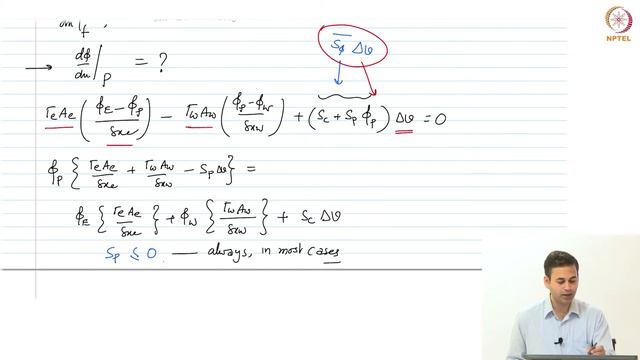 dn|f ,
NPTEL
→ dϕ/dn|P = ?
S̄ϕ Δϑ
ΓeAe (ϕE − ϕP / δxe) − ΓwAw (ϕP − ϕW / δxw) + (Sc + Sp ϕP) Δϑ = 0
ϕP { ΓeAe/δxe + ΓwAw/δxw − Sp Δϑ } =
ϕE { ΓeAe/δxe } + ϕW { ΓwAw/δxw } + Sc Δϑ
Sp ≤ 0 — always, in most cases